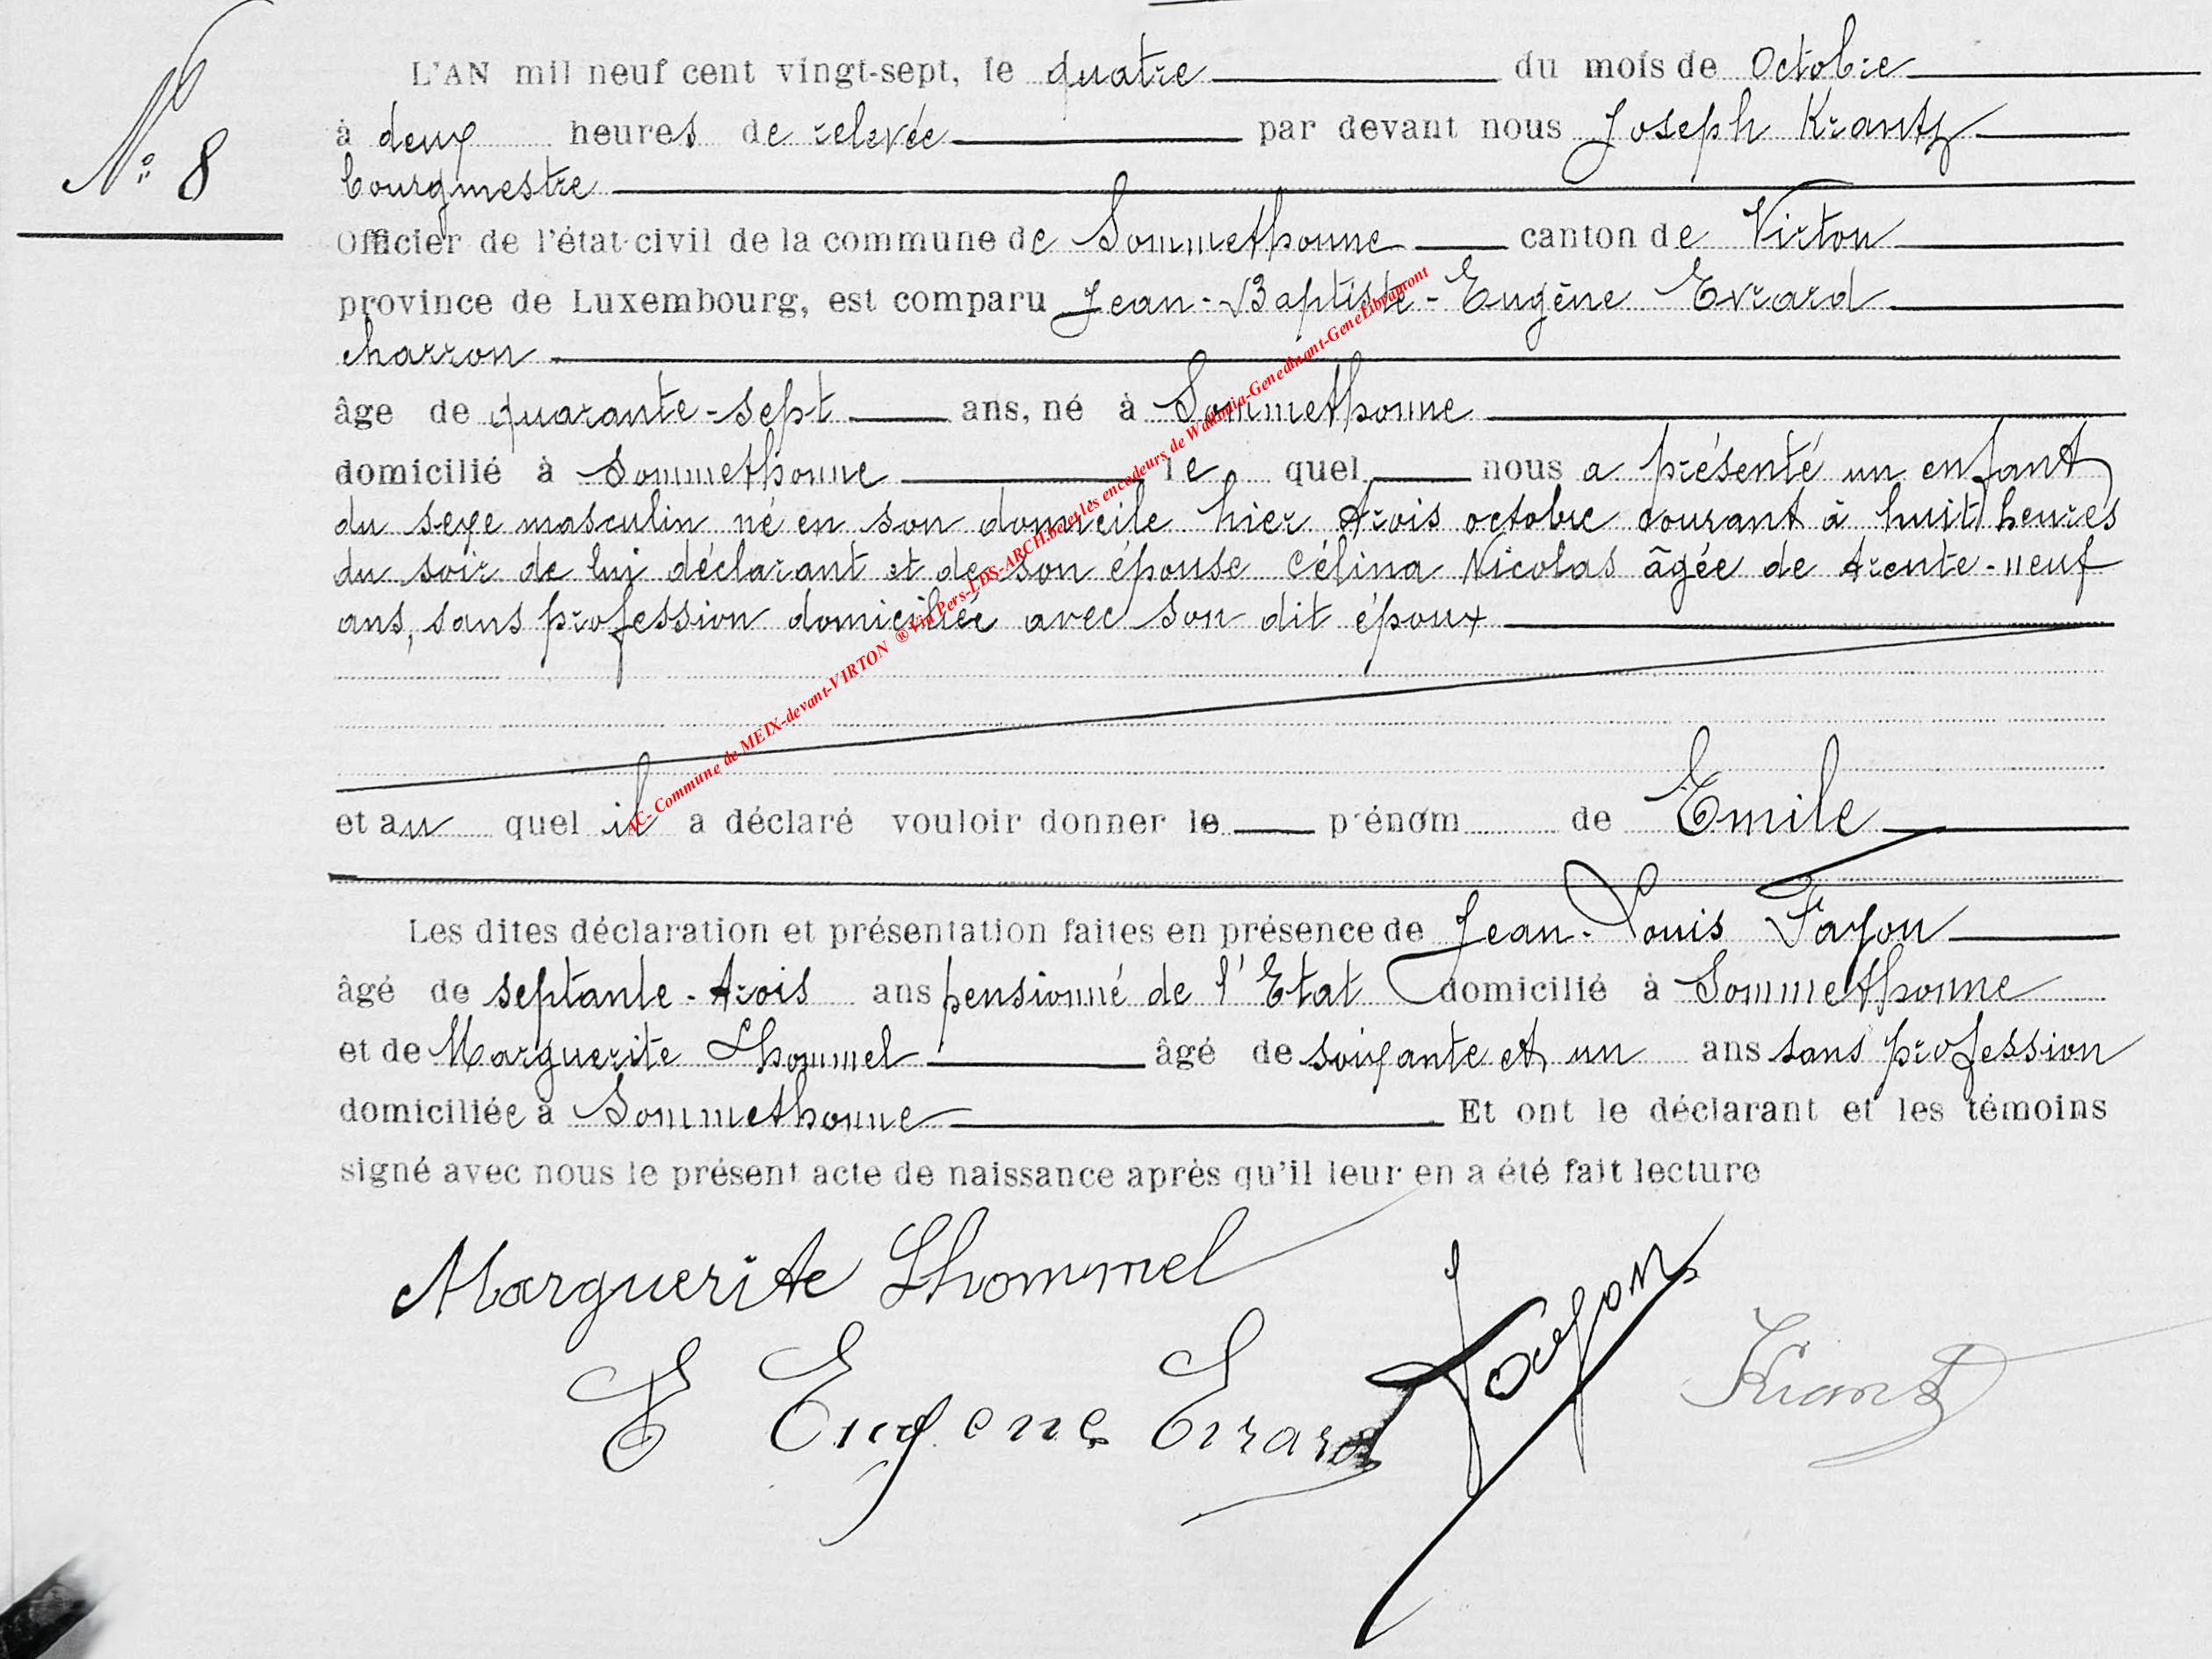 N° 8
L'AN mil neuf cent vingt-sept, le quatre du mois de Octobre
à deux heures de relevée par devant nous Joseph Krantz
bourgmestre
Officier de l'état-civil de la commune de Sommethonne canton de Virton
province de Luxembourg, est comparu Jean-Baptiste-Eugène Evrard
charron
âge de quarante-sept ans, né à Sommethonne
domicilié à Sommethonne le quel nous a présenté un enfant
du sexe masculin né en son domicile hier trois octobre courant à huit heures
du soir de lui déclarant et de son épouse Célina Nicolas âgée de trente-neuf
ans, sans profession domiciliée avec son dit époux
et au quel il a déclaré vouloir donner le prénom de Emile
Les dites déclaration et présentation faites en présence de Jean-Louis Fayon
âgé de septante-trois ans pensionné de l'Etat domicilié à Sommethonne
et de Marguerite Lhommel âgé de soixante et un ans sans profession
domiciliée à Sommethonne Et ont le déclarant et les témoins
signé avec nous le présent acte de naissance après qu'il leur en a été fait lecture
Marguerite Lhommel
E Eugene Evrard
Fayon
Krantz
AC- Commune de MEIX-devant-VIRTON ® Via Pers-LDS-ARCH.be et les encodeurs de Wallonia-Genedinant-GeneLibramont